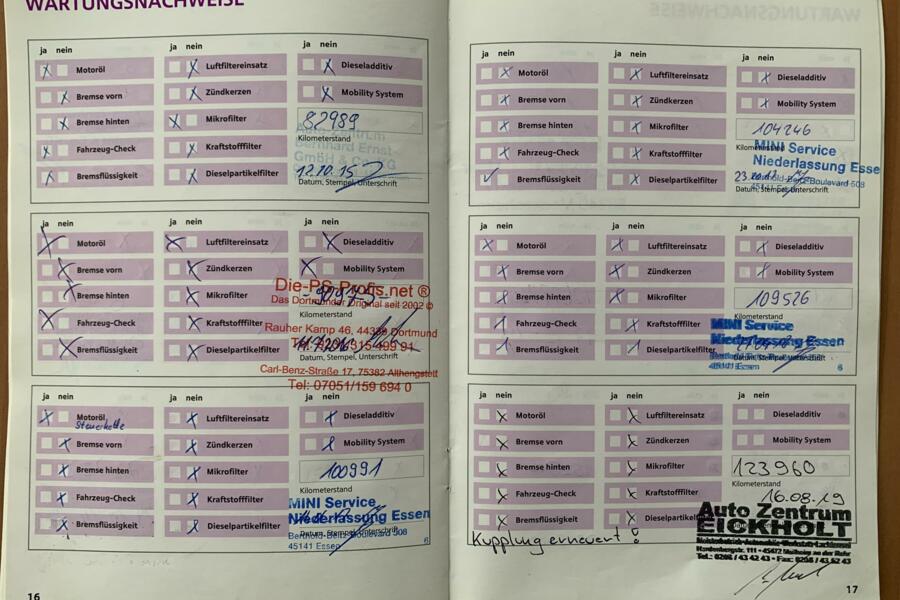 WARTUNGSNACHWEISE
ja nein
ja nein
ja nein
Motoröl
Luftfiltereinsatz
Dieseladditiv
Bremse vorn
Zündkerzen
Mobility System
Bremse hinten
Mikrofilter
82989
Kilometerstand
Bernhard Ernst
GmbH & Co. KG
Fahrzeug-Check
Kraftstofffilter
12.10.15
Bremsflüssigkeit
Dieselpartikelfilter
Datum, Stempel, Unterschrift
ja nein
ja nein
ja nein
Motoröl
Luftfiltereinsatz
Dieseladditiv
Bremse vorn
Zündkerzen
Mobility System
Die-PS-Profis.net ®
Bremse hinten
Mikrofilter
Das Dortmunder Original seit 2002 ©
Kilometerstand
Fahrzeug-Check
Kraftstofffilter
Rauher Kamp 46, 44339 Dortmund
Bremsflüssigkeit
Dieselpartikelfilter
Datum, Stempel, Unterschrift
Carl-Benz-Straße 17, 75382 Althengstett
Tel: 07051/159 694 0
ja nein
ja nein
ja nein
Motoröl
Steuerkette
Luftfiltereinsatz
Dieseladditiv
Bremse vorn
Zündkerzen
Mobility System
Bremse hinten
Mikrofilter
100991
Kilometerstand
Fahrzeug-Check
Kraftstofffilter
MINI Service
Niederlassung Essen
Bremsflüssigkeit
Dieselpartikelfilter
Datum, Stempel, Unterschrift
45141 Essen
6
16
ja nein
ja nein
ja nein
Motoröl
Luftfiltereinsatz
Dieseladditiv
Bremse vorn
Zündkerzen
Mobility System
Bremse hinten
Mikrofilter
104246
MINI Service
Niederlassung Esse
Fahrzeug-Check
Kraftstofffilter
Bremsflüssigkeit
Dieselpartikelfilter
Berthold-Beitz-Boulevard 508
Datum, Stempel, Unterschrift
ja nein
ja nein
ja nein
Motoröl
Luftfiltereinsatz
Dieseladditiv
Bremse vorn
Zündkerzen
Mobility System
Bremse hinten
Mikrofilter
109526
Kilometerstand
Fahrzeug-Check
Kraftstofffilter
MINI Service
Niederlassung Essen
Bremsflüssigkeit
Dieselpartikelfilter
45141 Essen
6
ja nein
ja nein
ja nein
Motoröl
Luftfiltereinsatz
Dieseladditiv
Bremse vorn
Zündkerzen
Mobility System
Bremse hinten
Mikrofilter
123960
Kilometerstand
Fahrzeug-Check
Kraftstofffilter
16.08.19
Bremsflüssigkeit
Dieselpartikelfilter
Auto Zentrum
EICKHOLT
Kupplung erneuert !
Hardenbergstr. 111 • 45472 Mülheim an der Ruhr
Tel.: 0208 / 43 42 43 • Fax: 0208 / 43 52 43
17